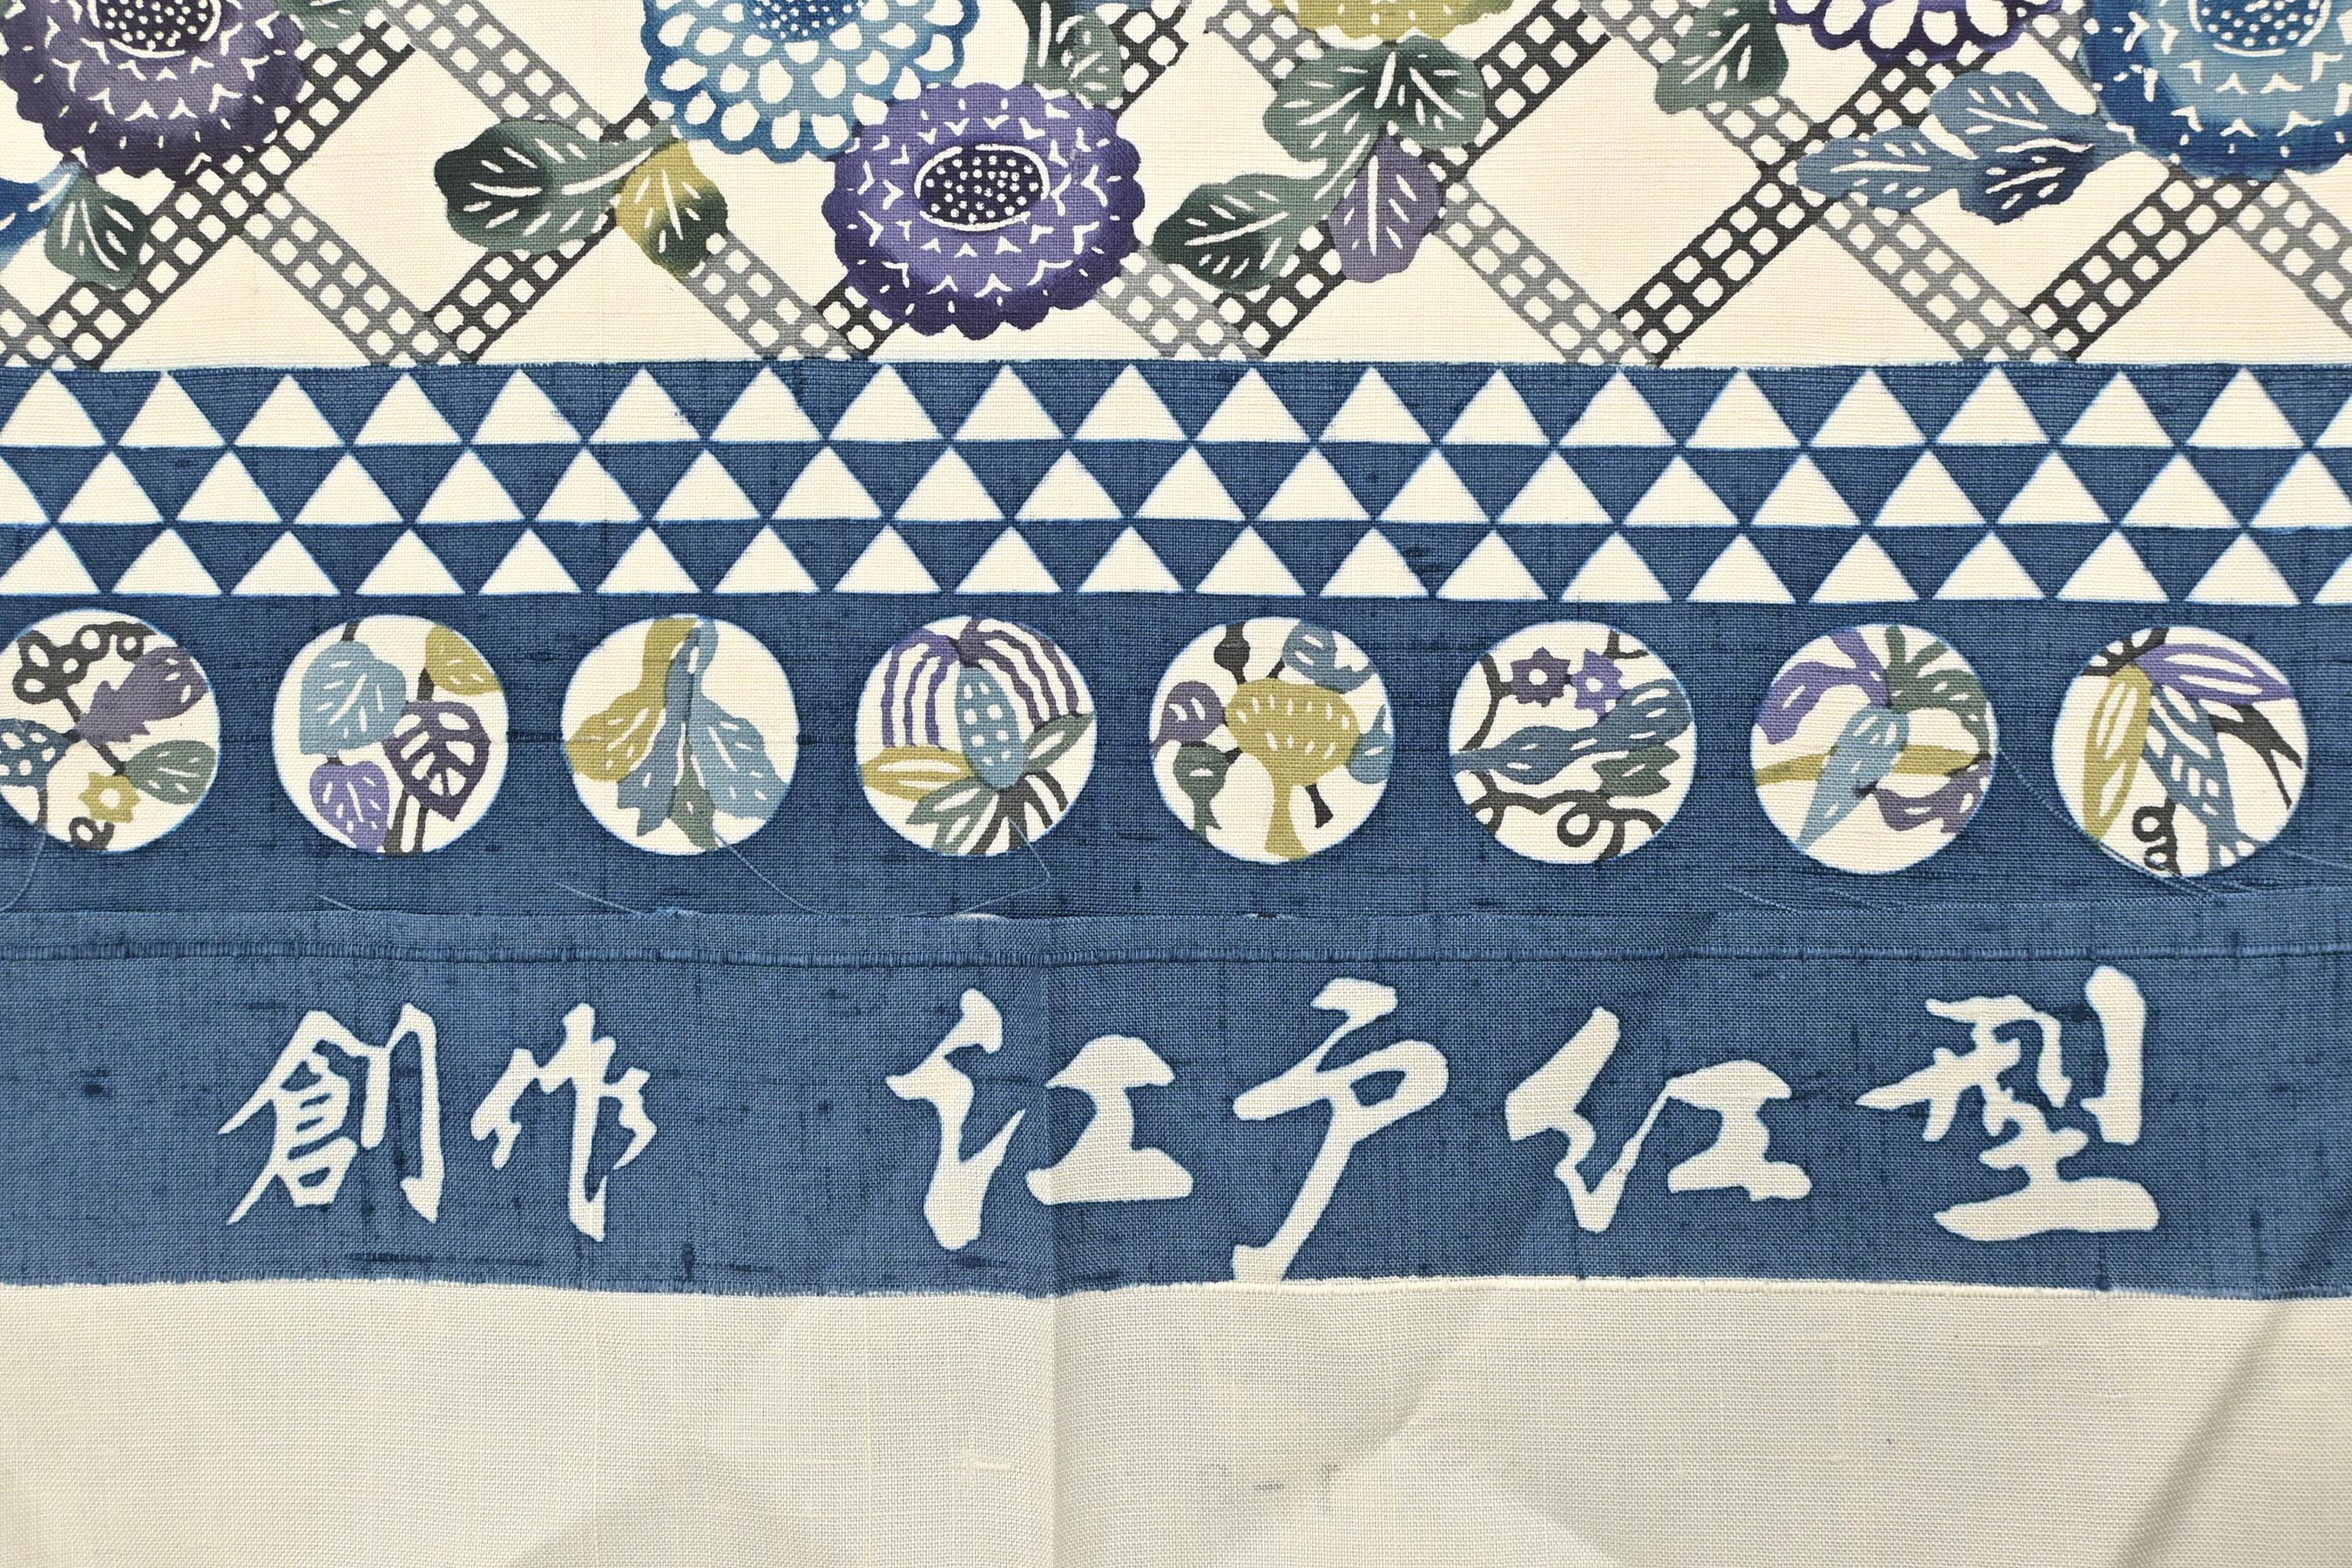 創作 江戸紅型